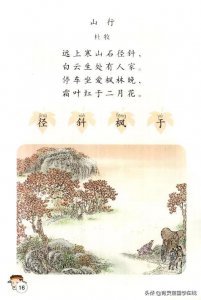 山行
杜牧
远上寒山石径斜，
白云生处有人家。
停车坐爱枫林晚，
霜叶红于二月花。
径 斜 枫 于
16